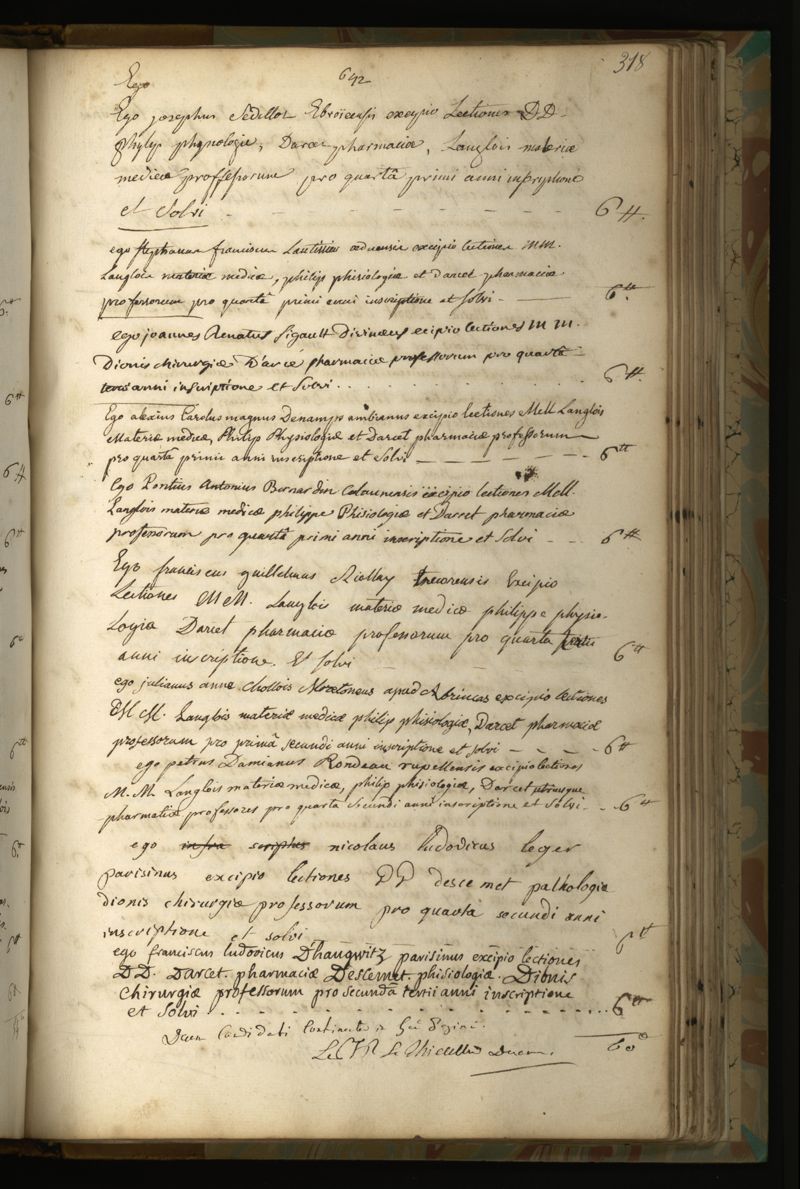 642
318
Ego
Ego josephus Sedillot Ebroicensis excipio Lectiones D.D.
phylip physologiæ, Darcet pharmaciæ, Langlois materiæ
medicæ professorum pro quartâ primi anni inscriptione
et Solvi - - - - - - - 6 ₶.
ego Stephanus franciscus æduensis excipio lectiones MM.
Langlois materiæ medicæ, philip phisiologiæ et darcet pharmaciæ
professorum pro quartâ primi anni inscriptione et Solvi - 6 ₶.
ego joannes Renatus Sigault Divinæus excipio lectiones M M.
Dionis chirurgiæ D'arcé pharmaciæ professorum pro quartâ
anni inscriptione et Solvi . . . . . . . 6 ₶.
Ego alexius Carolus magnus Denamps ambianus excipio lectiones Mell Langlois
Materiæ medicæ, Philip Physiologiæ et Darcet pharmaciæ professorum
pro quartâ primi anni inscriptione et Solvi - - - - 6 ₶
Ego Pontius Antonius Bernardin excipio lectiones Mell.
Langlois materiæ medicæ philippe Phisiologiæ et Darcet pharmaciæ
professorum pro quartâ primi anni inscriptione et Solvi - - - 6 ₶
Ego franciscus guillelmus Riollay trecorensis Excipio
Lectiones MM. Langlois materiæ medicæ philippe physio-
logiæ Darcet pharmaciæ professorum pro quarta
anni inscriptione. Et solvi - - - 6 ₶
ego julianus anne Chollois Moretoneus apud abrincas excipio lectiones
M M. Langlois materiæ medicæ philip phisiologiæ, Darcet pharmaciæ
professorum pro primâ secundi anni inscriptione et solvi - - - - 6 ₶
ego petrus Damianus Rondeau rupellensis excipio lectiones
M. M. Langlois materiæ medicæ, philip phisiologiæ, Darcet utriusque
pharmatiæ professores pro quarta secundi anni inscriptione et Solvi - - 6 ₶
ego infra scriptus nicolaus ludovicus leger
parisinus excipio lectiones DD descemet pathologiæ
dionis chirurgiæ professorum pro quarta secundi anni
inscriptione et solvi 6 ₶
ego franciscus ludovicus Dhaugwitz parisinus excipio lectiones
DD. Darcet. pharmaciæ Descemet. phisiologiæ. Dionis
chirurgiæ professorum pro secundâ tertii anni inscriptione
et Solvi . - . - . - . - . - . - . . . 6 ₶
Decem Candidati
60
Le Thieullier Decanus.